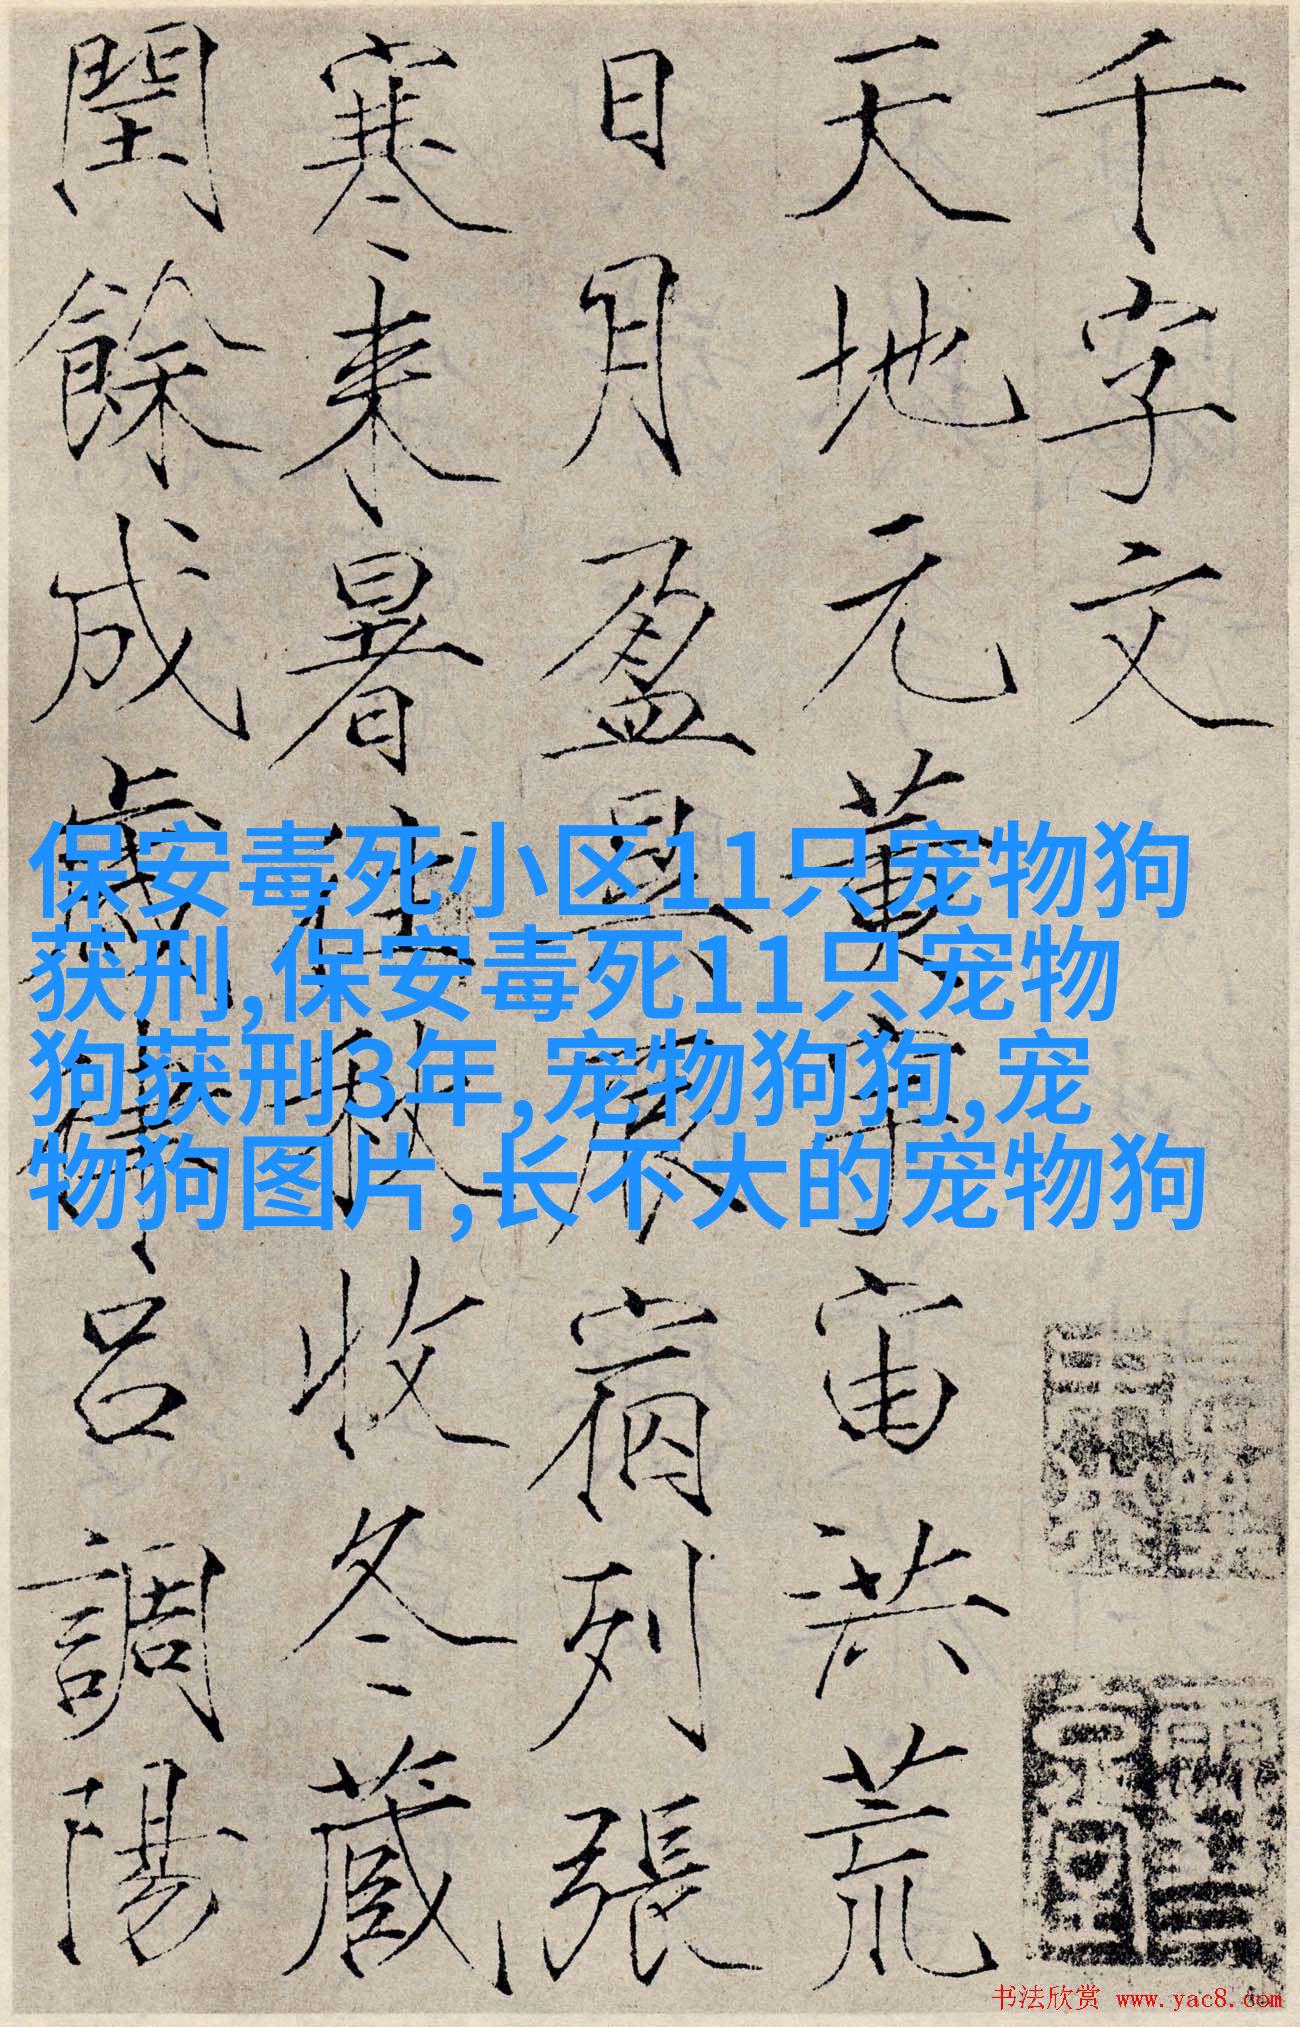 千字文
天地元黄宇宙洪荒
日月盈昃辰宿列張
寒来暑往秋收冬蔵
閏餘成歲律吕調陽
保安毒死小区11只宠物狗
获刑,保安毒死11只宠物
狗获刑3年,宠物狗狗,宠
物狗图片,长不大的宠物狗
书法欣赏 www.yac8.com